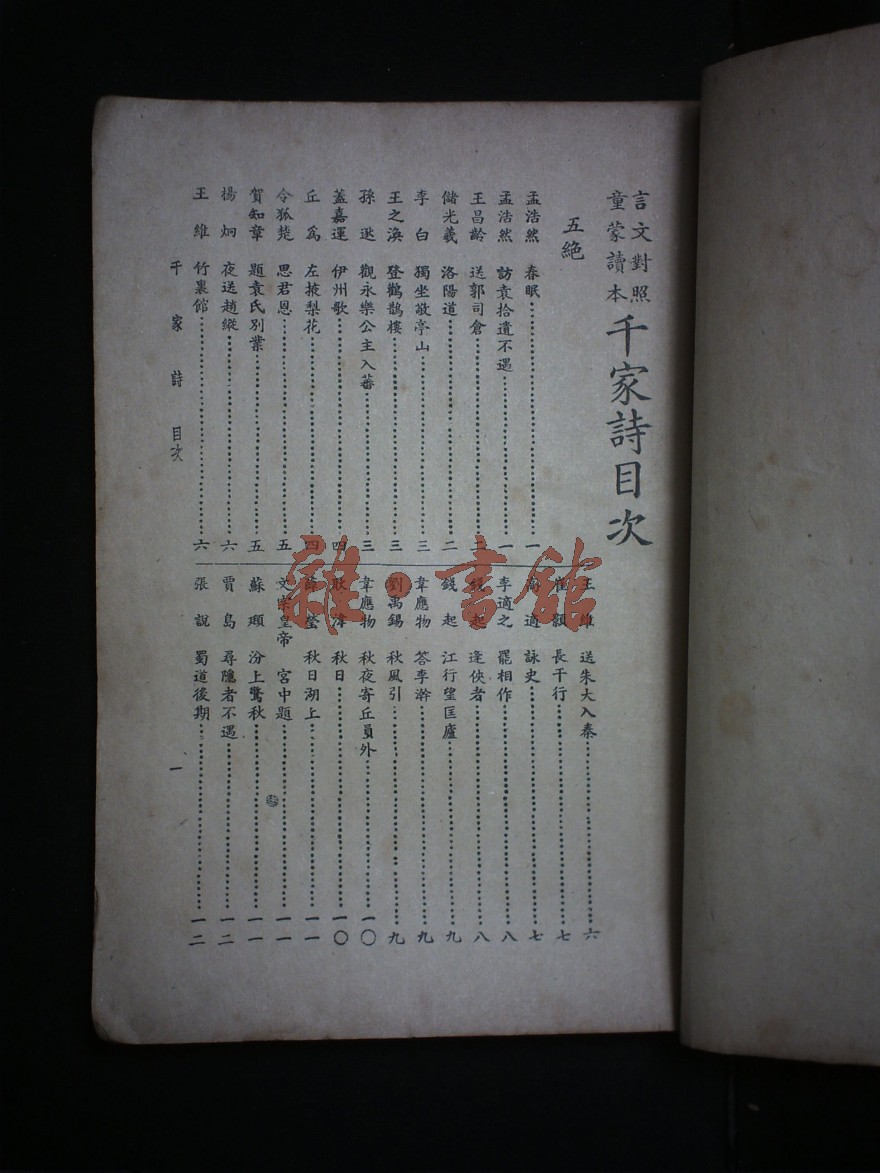 言文對照
童蒙讀本
千家詩目次
五絕
孟浩然 春眠……一
孟浩然 訪袁拾遺不遇……一
王昌齡 送郭司倉……二
儲光羲 洛陽道……二
李白 獨坐敬亭山……三
王之渙 登鸛鵲樓……三
孫逖 觀永樂公主入蕃……三
蓋嘉運 伊州歌……四
丘爲 左掖梨花……四
令狐楚 思君恩……五
賀知章 題袁氏別業……五
楊炯 夜送趙縱……六
王維 竹裏館……六
王維 送朱大入秦……六
崔顥 長干行……七
高適 詠史……七
李適之 罷相作……八
錢起 逢俠者……八
錢起 江行望匡廬……九
韋應物 答李澣……九
劉禹錫 秋風引……九
韋應物 秋夜寄丘員外……一〇
耿湋 秋日……一〇
薛瑩 秋日湖上……一一
文宗皇帝 宮中題……一一
蘇頲 汾上驚秋……一一
賈島 尋隱者不遇……一二
張說 蜀道後期……一二
千家詩 目次 一
雜·書館